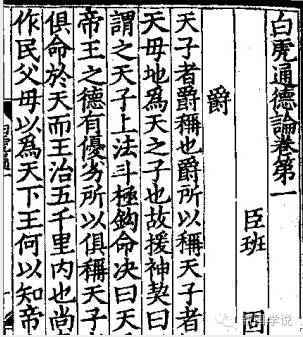 白虎通德論卷第一
臣班 固
爵
天子者爵稱也爵所以稱天子者
天母地爲天之子也故援神契曰
謂之天子上法斗極鈎命决曰天
帝王之德有優劣所以俱稱天子
俱命於天而王治五千里内也尚
作民父母以爲天下王何以知帝
学说